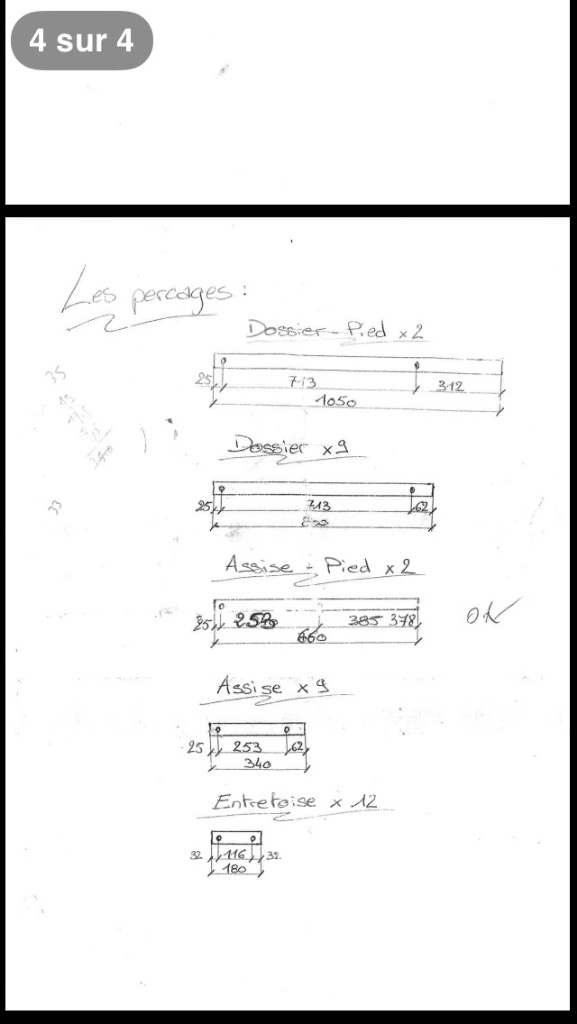 4 sur 4
Les percages :
Dossier - Pied x 2
25 713 312
1050
Dossier x 9
25 713 62
Assise - Pied x 2
25 385 378
OK
Assise x 9
25 253 62
340
Entretoise x 12
32 116 32
180
35
33